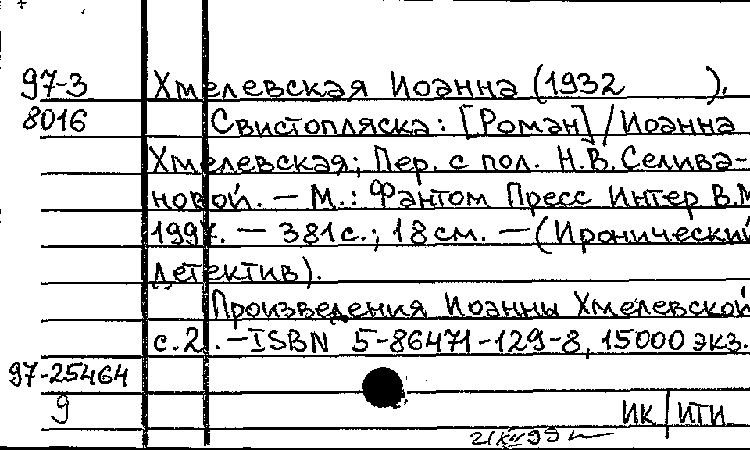 97-3 Хмелевская Иоанна (1932 ).
8016 Свистопляска: [Роман] / Иоанна
Хмелевская; Пер. с пол. Н.В. Селива-
новой. — М.: Фантом Пресс Интер В.М
1997. — 381с.; 18см. — (Иронический
детектив).
Произведения Иоанны Хмелевской
с.2. — ISBN 5-86471-129-8, 15000 экз.
97-25464
9 ИК | ИТИ